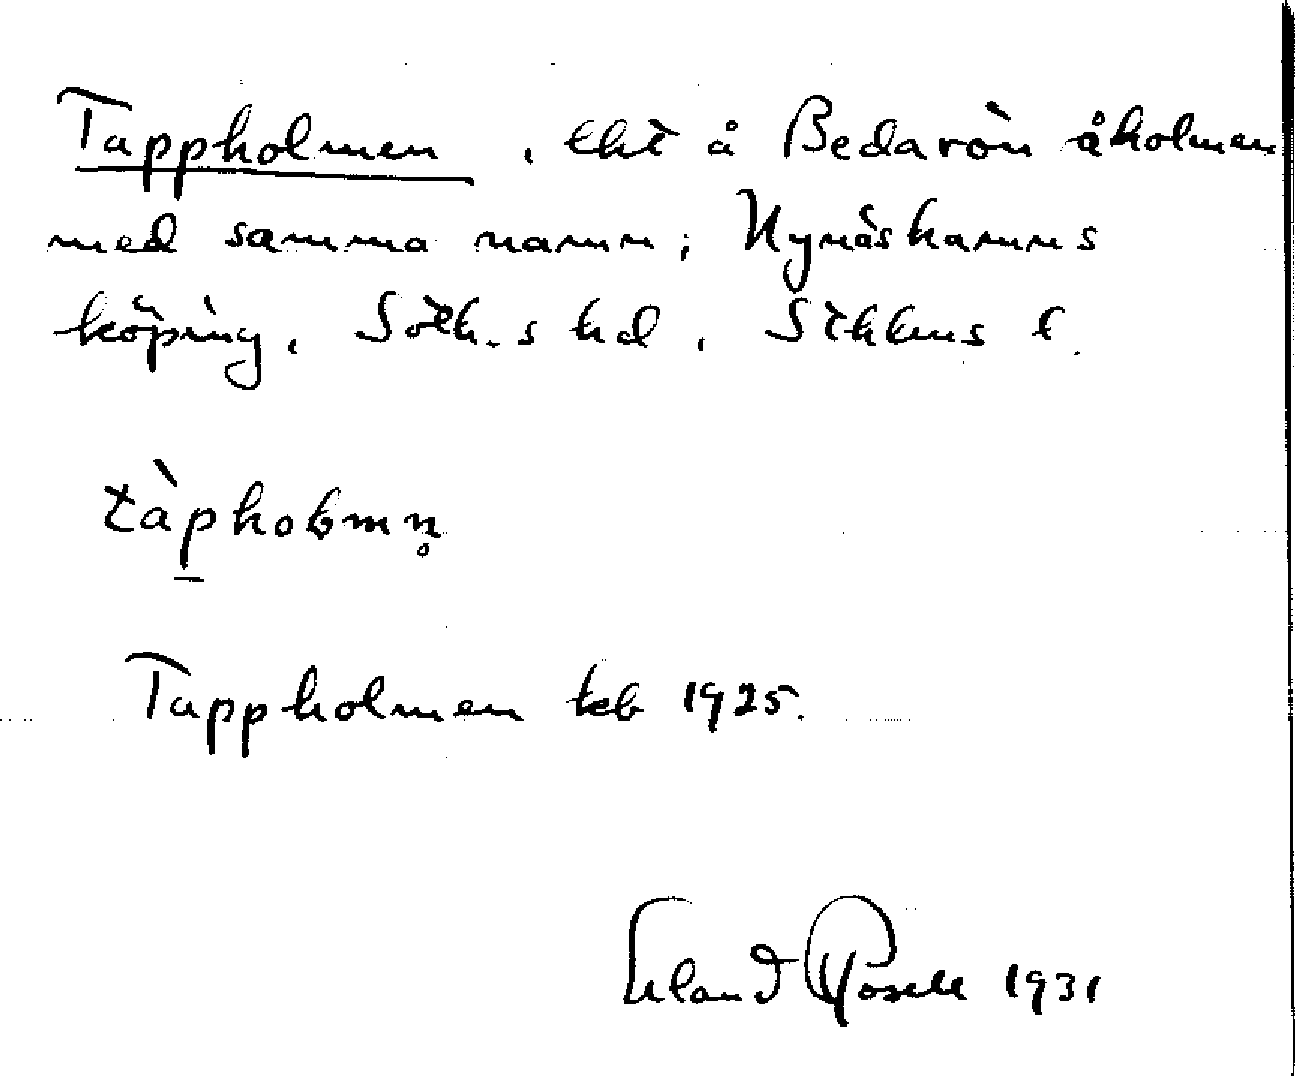 Tappholmen, lht å Bedarön å holmen
med samma namn; Nynäshamns
köping, Söth.s hd, Sthlms l.
tàpholmn̥
Tappholmen keb 1925.
Erland Rosell 1931